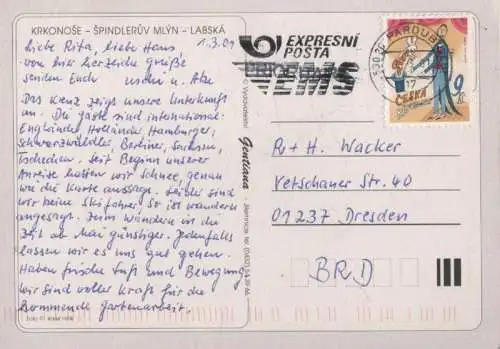 KRKONOŠE – ŠPINDLERŮV MLÝN – LABSKÁ
1.3.01
Liebe Rita, liebe Hans,
von hier herzliche Grüße
senden Euch Uschi u. Atze
Das Kreuz zeigt unsere Unterkunft
an. Die Gäste sind international:
Engländer, Holländer, Hamburger,
Schwarzwälder, Berliner, Sachsen,
Tschechen. Seit Beginn unserer
Anreise hatten wir Schnee, genau
wie die Karte aussagt. Leider sind
wir keine Skifahrer. So ist wandern
angesagt. Zum Wandern ist die
Zeit ab Mai günstiger. Jedenfalls
lassen wir es uns gut gehen.
Haben frische Luft und Bewegung
wir sind voller Kraft für die
kommende Gartenarbeit.
© Vydavatelství
Gentiana
Jilemnice
EXPRESNÍ
POŠTA
EMS
PARDUBI
ČESKÁ
9
R+H Wacker
Vetschauer Str. 40
01237 Dresden
BRD